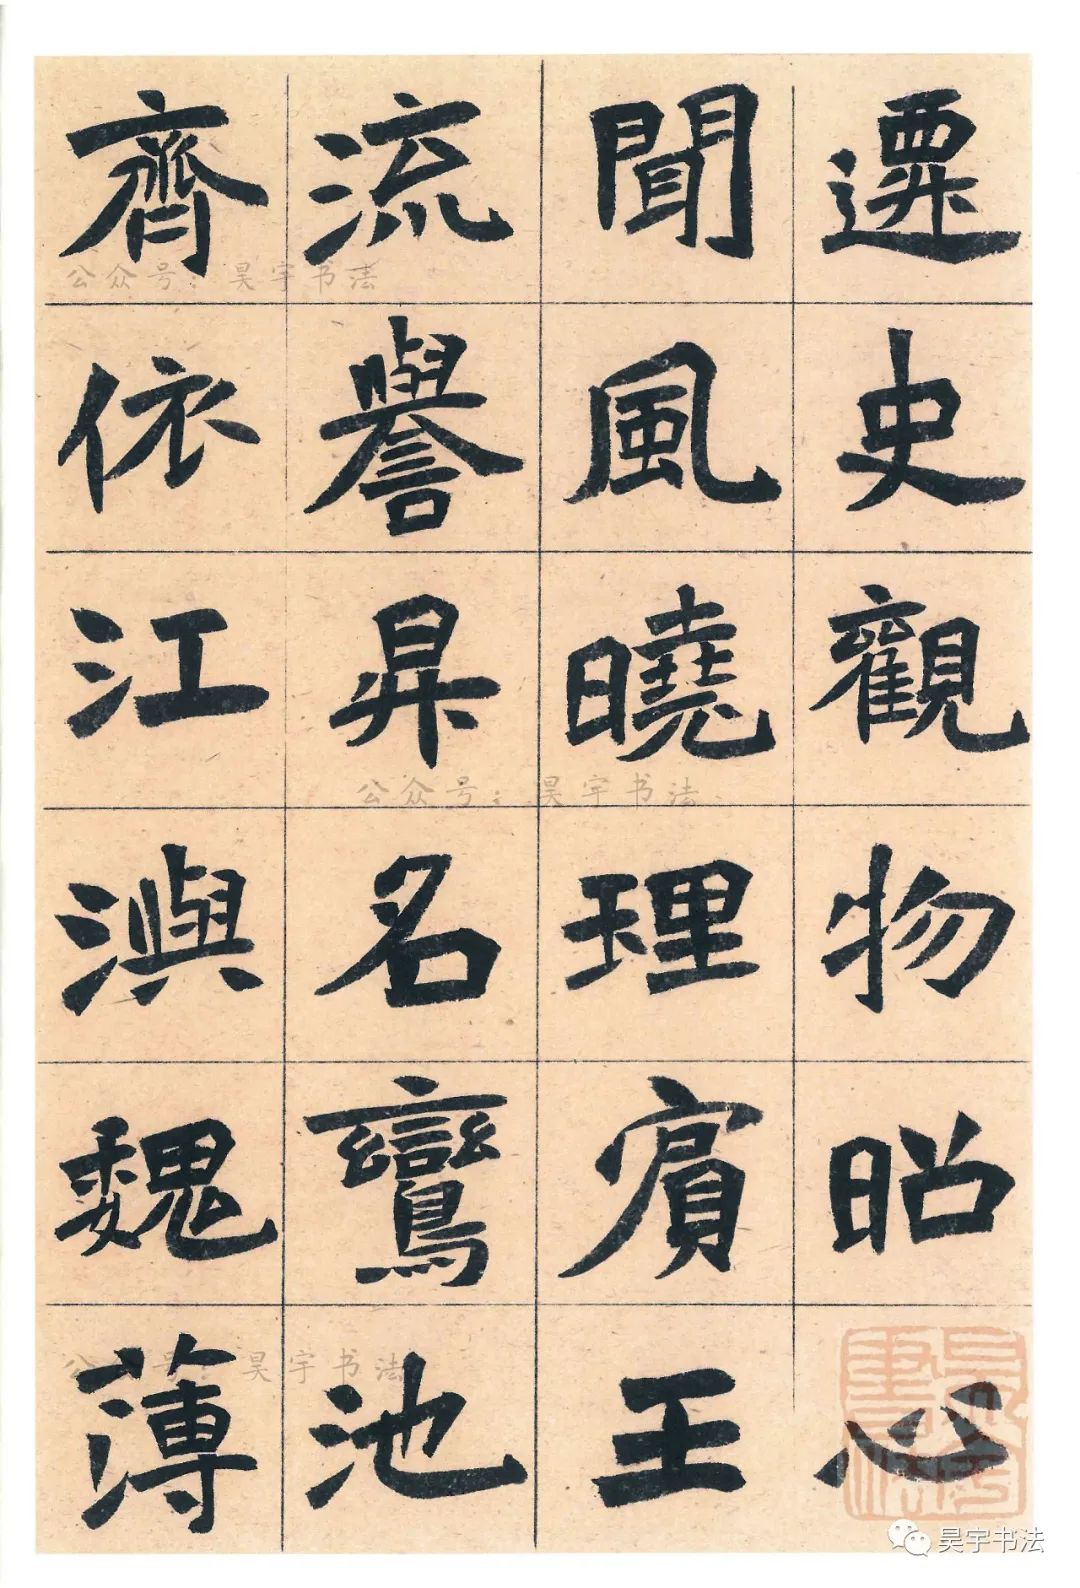 遷史觀物昭心
聞風曉理賓王
流譽昇名鸞池
齊依江魏薄
公众号：昊宇书法
公众号：昊宇书法
公众号：昊宇书法
昊宇书法